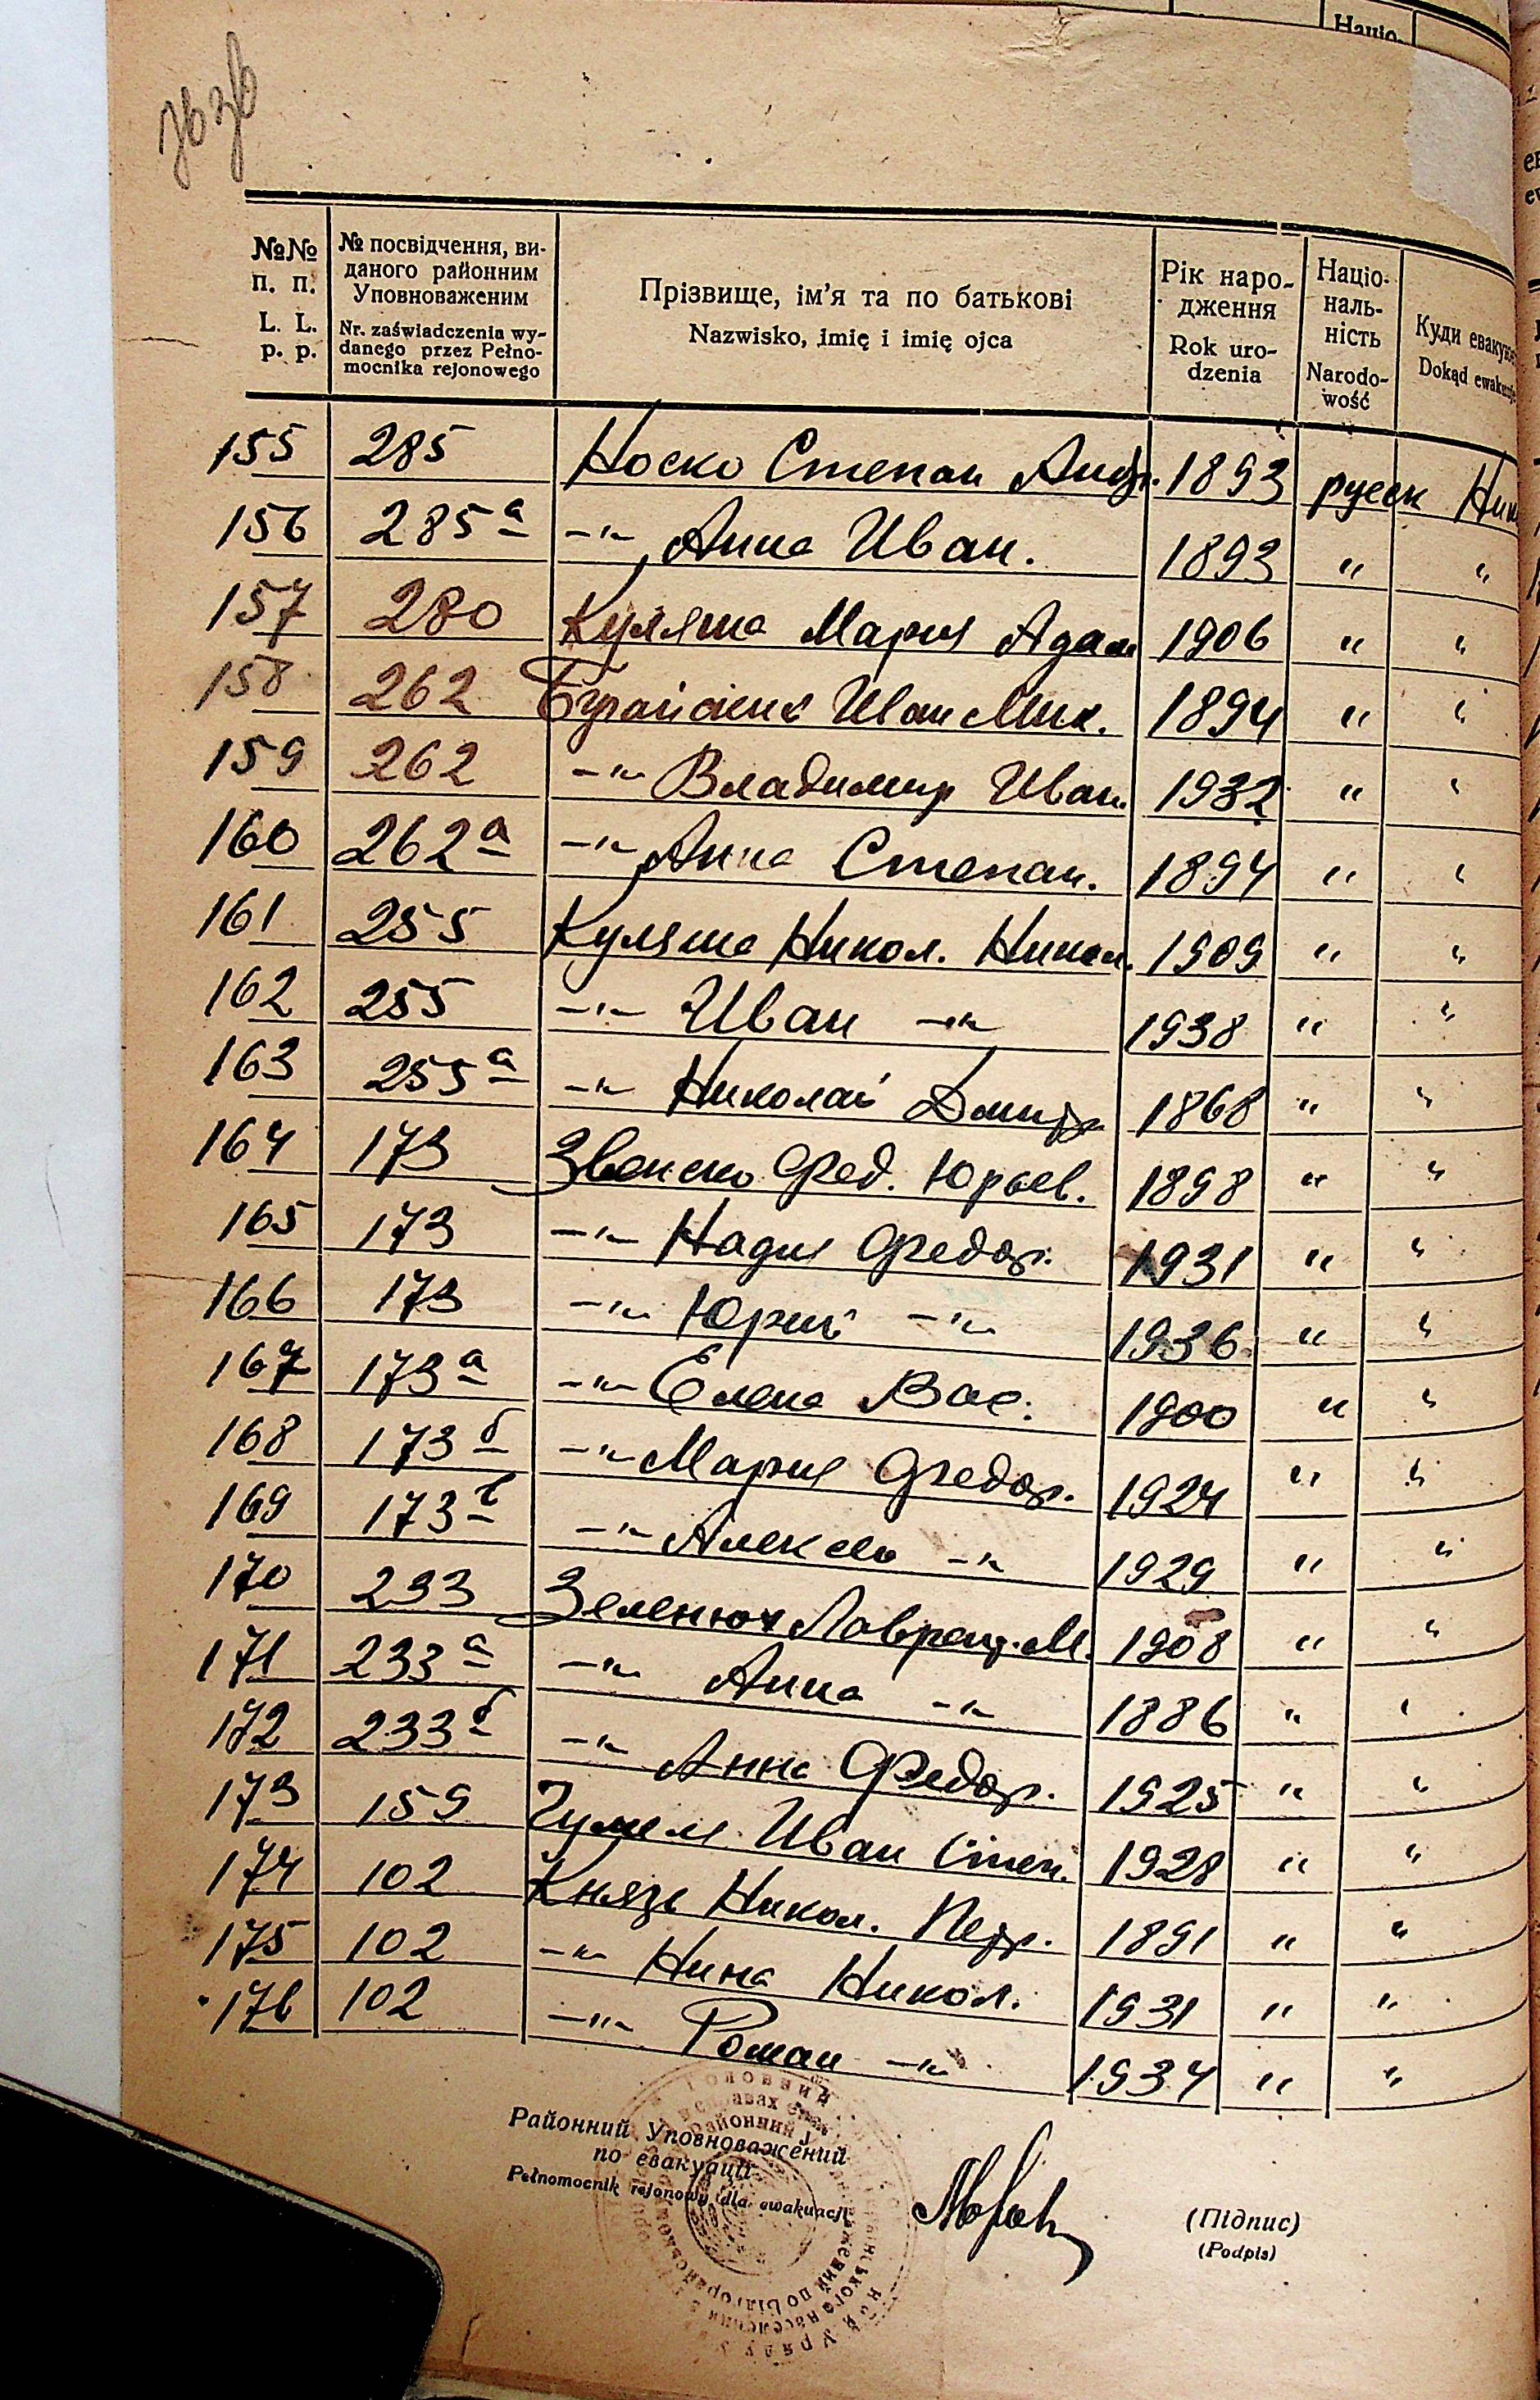 Націо-
№№ п. п.
L. L. p. p.
№ посвідчення, ви-
даного районним
Уповноваженим
Nr. zaświadczenia wy-
danego przez Pełno-
mocnika rejonowego
Прізвище, ім'я та по батькові
Nazwisko, imię i imię ojca
Рік наро-
дження
Rok uro-
dzenia
Націо-
наль-
ність
Narodo-
wość
Куди евакую
Dokąd ewakuuje
155 285 Носко Степан Андр. 1893 русск Ник
156 285а -"- Анна Иван. 1893 " "
157 280 Куляша Мария Адам 1906 " "
158 262 Иван Мих. 1894 " "
159 262 -"- Владимир Иван. 1932 " "
160 262а -"- Анна Степан. 1894 " "
161 255 Куляша Никол. Никол. 1909 " "
162 255 -"- Иван -"- 1938 " "
163 255а -"- Николай Дмитр 1868 " "
164 173 Фед. Юрьев. 1898 " "
165 173 -"- Надия Федор. 1931 " "
166 173 -"- Юрий -"- 1936 " "
167 173а -"- Елена Вас. 1900 " "
168 173б -"- Мария Федор. 1924 " "
169 173в -"- Алексей -"- 1929 " "
170 233 Зеленюк Лаврент. М. 1908 " "
171 233а -"- Анна -"- 1886 " "
172 233б -"- Анна Федор. 1925 " "
173 159 Иван Степ. 1928 " "
174 102 Князь Никол. Петр. 1891 " "
175 102 -"- Нина Никол. 1931 " "
176 102 -"- Роман -"- 1934 " "
Районний Уповноважений
по евакуації
Pełnomocnik rejonowy dla ewakuacji
(Підпис)
(Podpis)